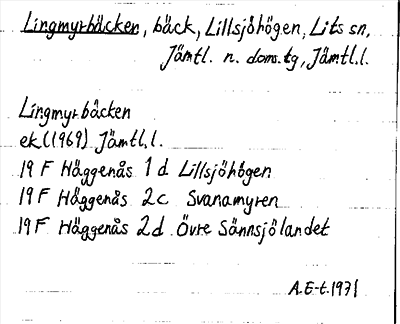 Lingmyrbäcken, bäck, Lillsjöhögen, Lits sn,
Jämtl. n. doms.tg, Jämtl.l.
Lingmyrbäcken
ek(1969) Jämtl.l.
19 F Häggenås 1 d Lillsjöhögen
19 F Häggenås 2c Svanamyren
19 F Häggenås 2d Övre Sännsjölandet
A.E-t.1971